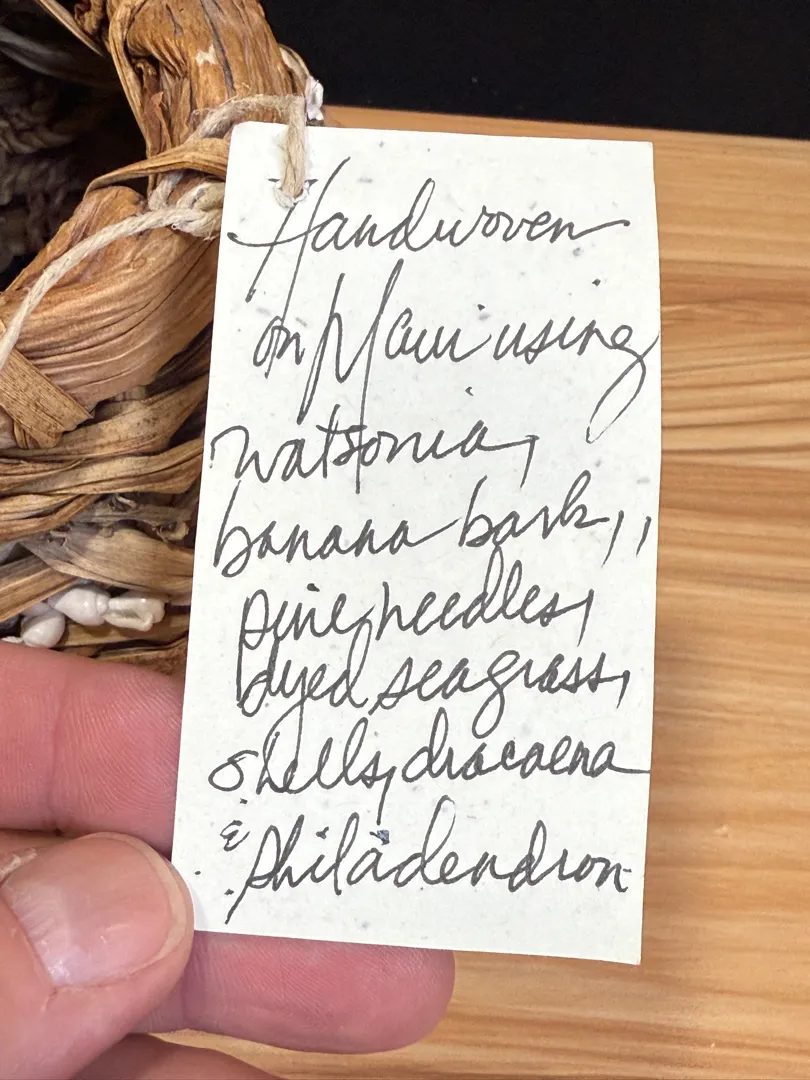 Handwoven
on Maui using
watsonia,
banana bark,,
pine needles,
dyed seagrass,
shells, dracaena
& philadendron